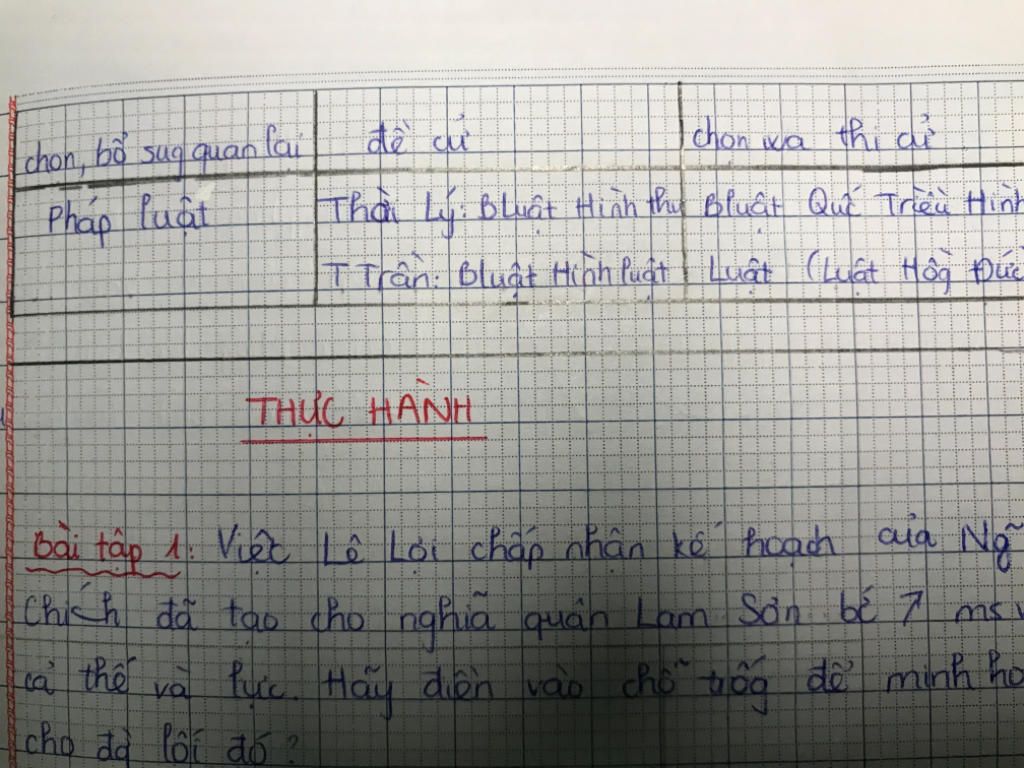 chọn, bổ sug quan lại đề cử chọn wa thi cử
Pháp luật Thời Lý: Bluật Hình thư Bluật Quố Triều Hình
T Trần: Bluật Hình luật Luật (Luật Hồg Đức
THỰC HÀNH
Bài tập 1: Việc Lê Lợi chấp nhận kế hoạch của Ng
Chích đã tạo cho nghĩa quân Lam Sơn bé 7
cả thế và lực. Hãy điền vào chỗ trốg để minh ho
cho đg lối đó?